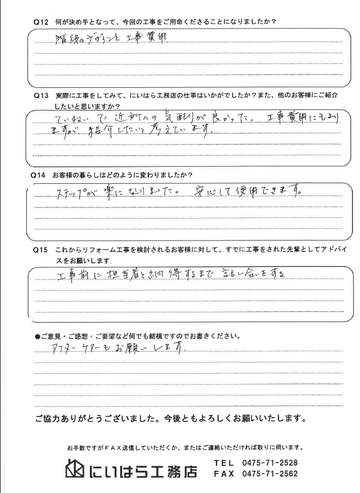 Q12 何が決め手となって、今回の工事をご用命くださることになりましたか?
階段のデザインと工事費用
Q13 実際に工事をしてみて、にいはら工務店の仕事はいかがでしたか?また、他のお客様にご紹介
したいと思いますか?
ていねいで近所への気配りが良かった。工事費用にもより
ますが紹介したいと考えています。
Q14 お客様の暮らしはどのように変わりましたか?
ステップが楽になりました。安心して使用できます。
Q15 これからリフォーム工事を検討されるお客様に対して、すでに工事をされた先輩としてアドバイ
スをお願いします.
工事前に担当者と納得するまで話し合いをする
●ご意見・ご感想・ご要望など何でも結構ですのでお書きください。
アフターケアーもお願いします.
ご協力ありがとうございました。今後ともよろしくお願いいたします。
お手数ですがFAX送信していただくか、またはご連絡いただければ取りに伺います。
にいはら工務店
TEL 0475-71-2528
FAX 0475-71-2562